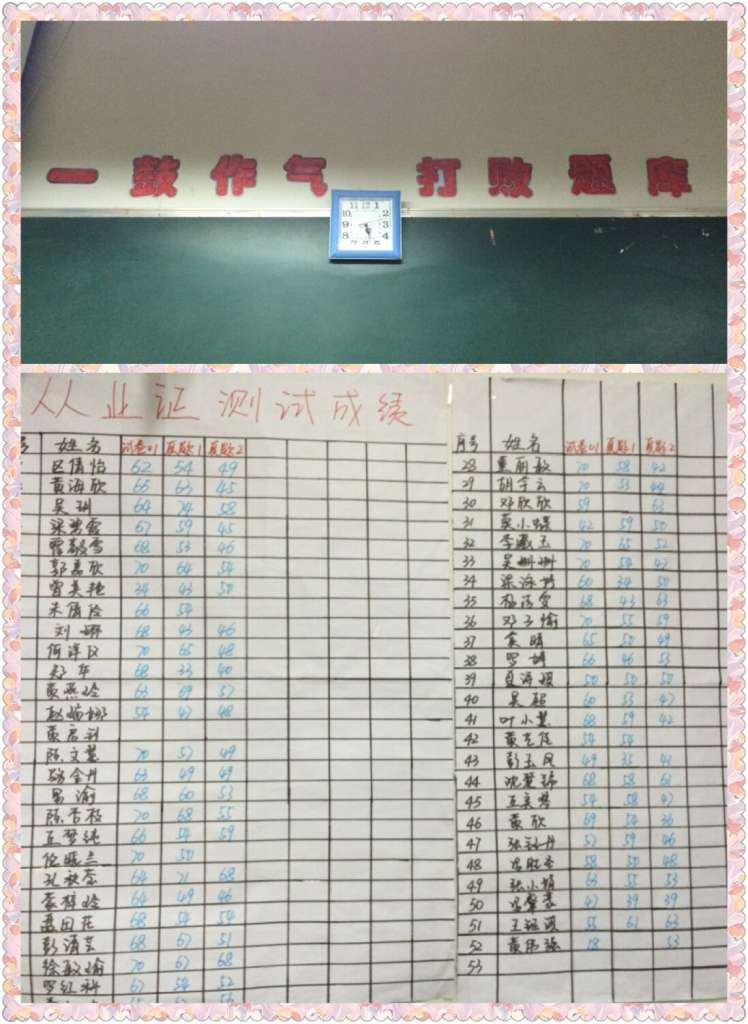 一鼓作气 打败题库
11 12 1
10 2
9 3
8 4
从业证测试成绩
号 姓名 试卷01 真题1 真题2
区倩怡 62 54 49
黄海欣 65 63 45
吴 64 74 58
67 59 45
68 53 46
郭嘉欣 70 64 54
曾美艳 34 43 50
朱倩 66 54
刘娜 68 43 46
何洋 70 65 48
郑 68 33 40
黄燕玲 63 69 57
赵 54 47 48
黄
陈文慧 70 57 49
63 49 49
易渝 68 60 53
陈 70 68 55
王梦纯 66 54 59
伦晓兰 70 50
孔秋 64 71 68
64 49 46
聂田花 68 54 54
彭清 68 67 51
徐敏瑜 70 67 68
罗红科 67 54 52
序号 姓名 试卷01 真题1 真题2
28 丽敏 70 58 42
29 胡宇云 70 53 44
30 邓欣欣 59 63
31 莫小 42 59 50
32 李 玉 70 65 52
33 吴姗姗 70 54 47
34 梁 60 34 50
35 雯 68 43 63
36 邓子愉 70 55 59
37 晴 65 50 49
38 罗 66 46 53
39 夏海 50 50 50
40 吴 60 53 47
41 叶小慧 68 59 42
42 黄 54 54
43 彭玉凤 49 35 41
44 沈楚 68 58 61
45 54 58 47
46 黄欣 69 54 36
47 张 丹 57 59 46
48 冯 58 50 48
49 张小娟 63 55 53
50 冯 47 39 39
51 王 55 61 63
52 黄 18 53
53